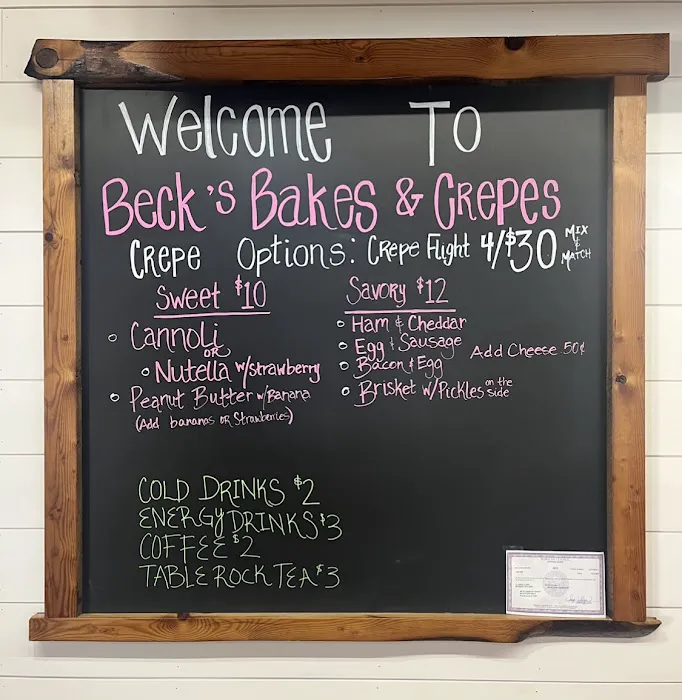 Welcome To
Beck's Bakes & Crepes
Crepe Options: Crepe Flight 4/$30 Mix & Match
Sweet $10
Cannoli
or
Nutella w/strawberry
Peanut Butter w/Banana
(Add bananas or Strawberries)
Savory $12
Ham & Cheddar
Egg & Sausage
Bacon & Egg
Add Cheese 50¢
Brisket w/Pickles on the side
COLD DRINKS $2
ENERGY DRINKS $3
COFFEE $2
TABLE ROCK TEA $3